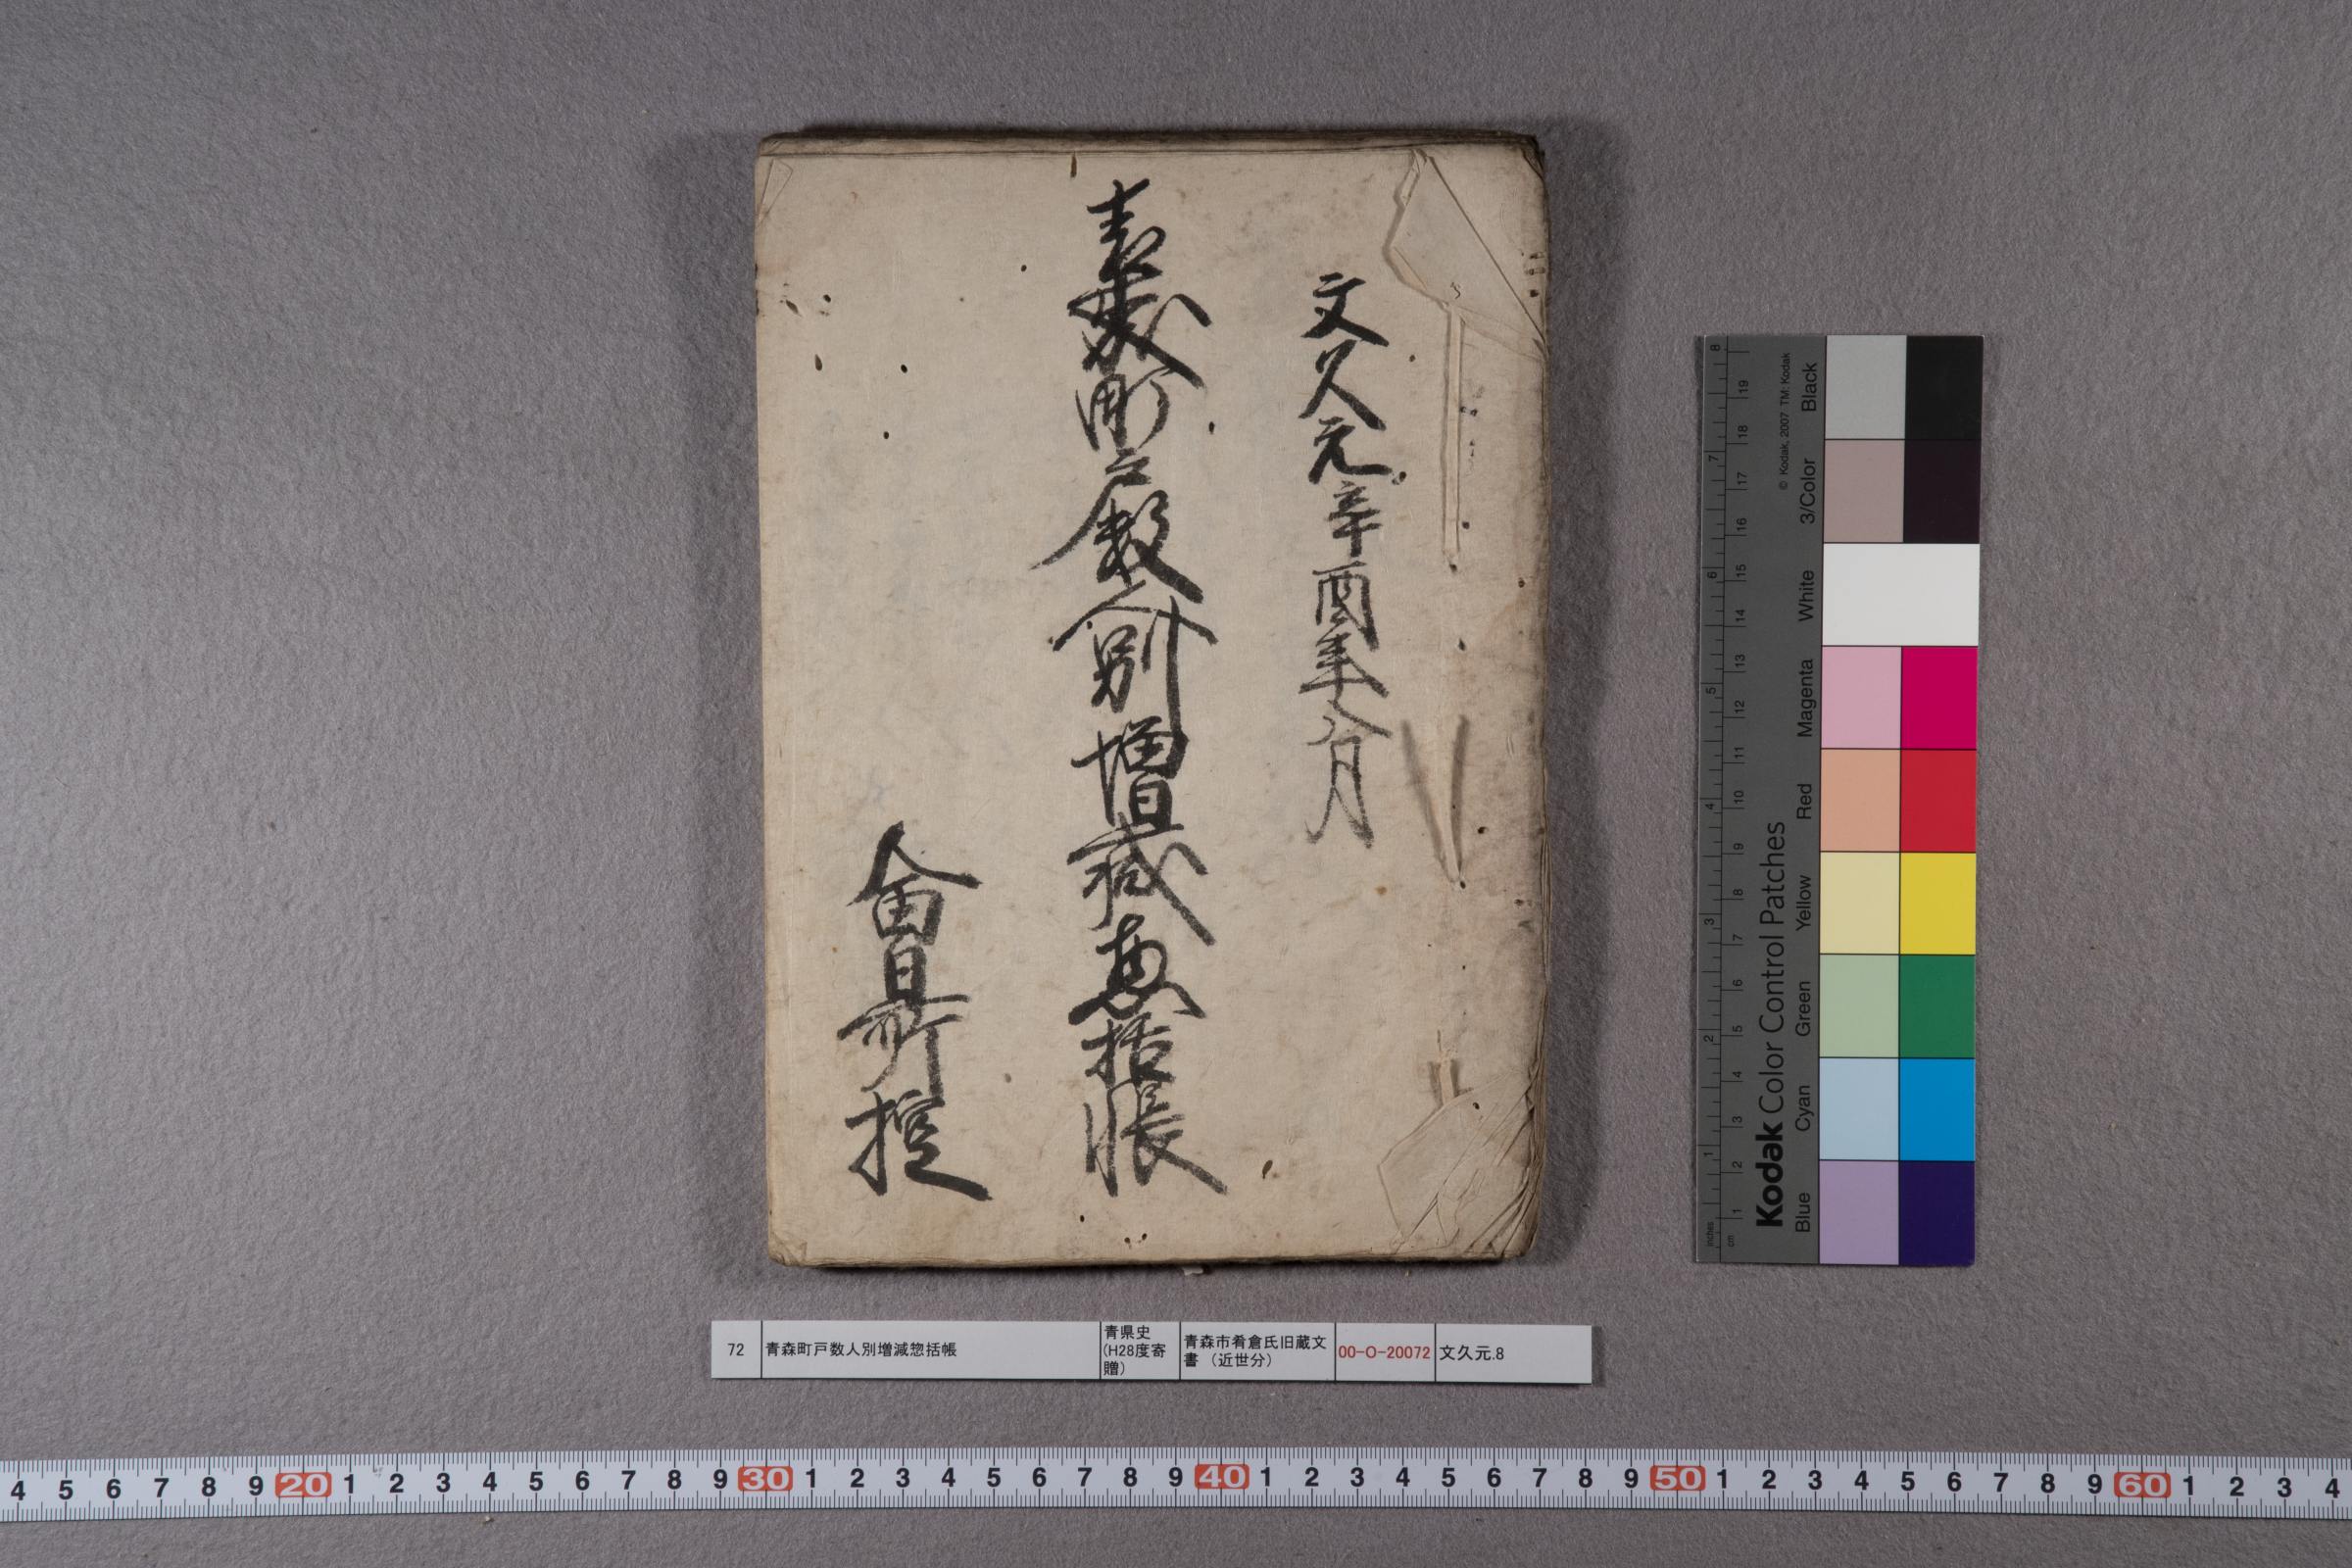 文久元辛酉年八月
青森町戸数人別増減惣括帳
会所町控
72
青森町戸数人別増減惣括帳
青県史
(H28度寄
贈)
青森市肴倉氏旧蔵文
書 （近世分）
00-O-20072
文久元.8
Kodak Color Control Patches
© Kodak, 2007 TM: Kodak
Blue Cyan Green Yellow Red Magenta White 3/Color Black
inches 1 2 3 4 5 6 7 8
cm 1 2 3 4 5 6 7 8 9 10 11 12 13 14 15 16 17 18 19
4 5 6 7 8 9 20 1 2 3 4 5 6 7 8 9 30 1 2 3 4 5 6 7 8 9 40 1 2 3 4 5 6 7 8 9 50 1 2 3 4 5 6 7 8 9 60 1 2 3 4